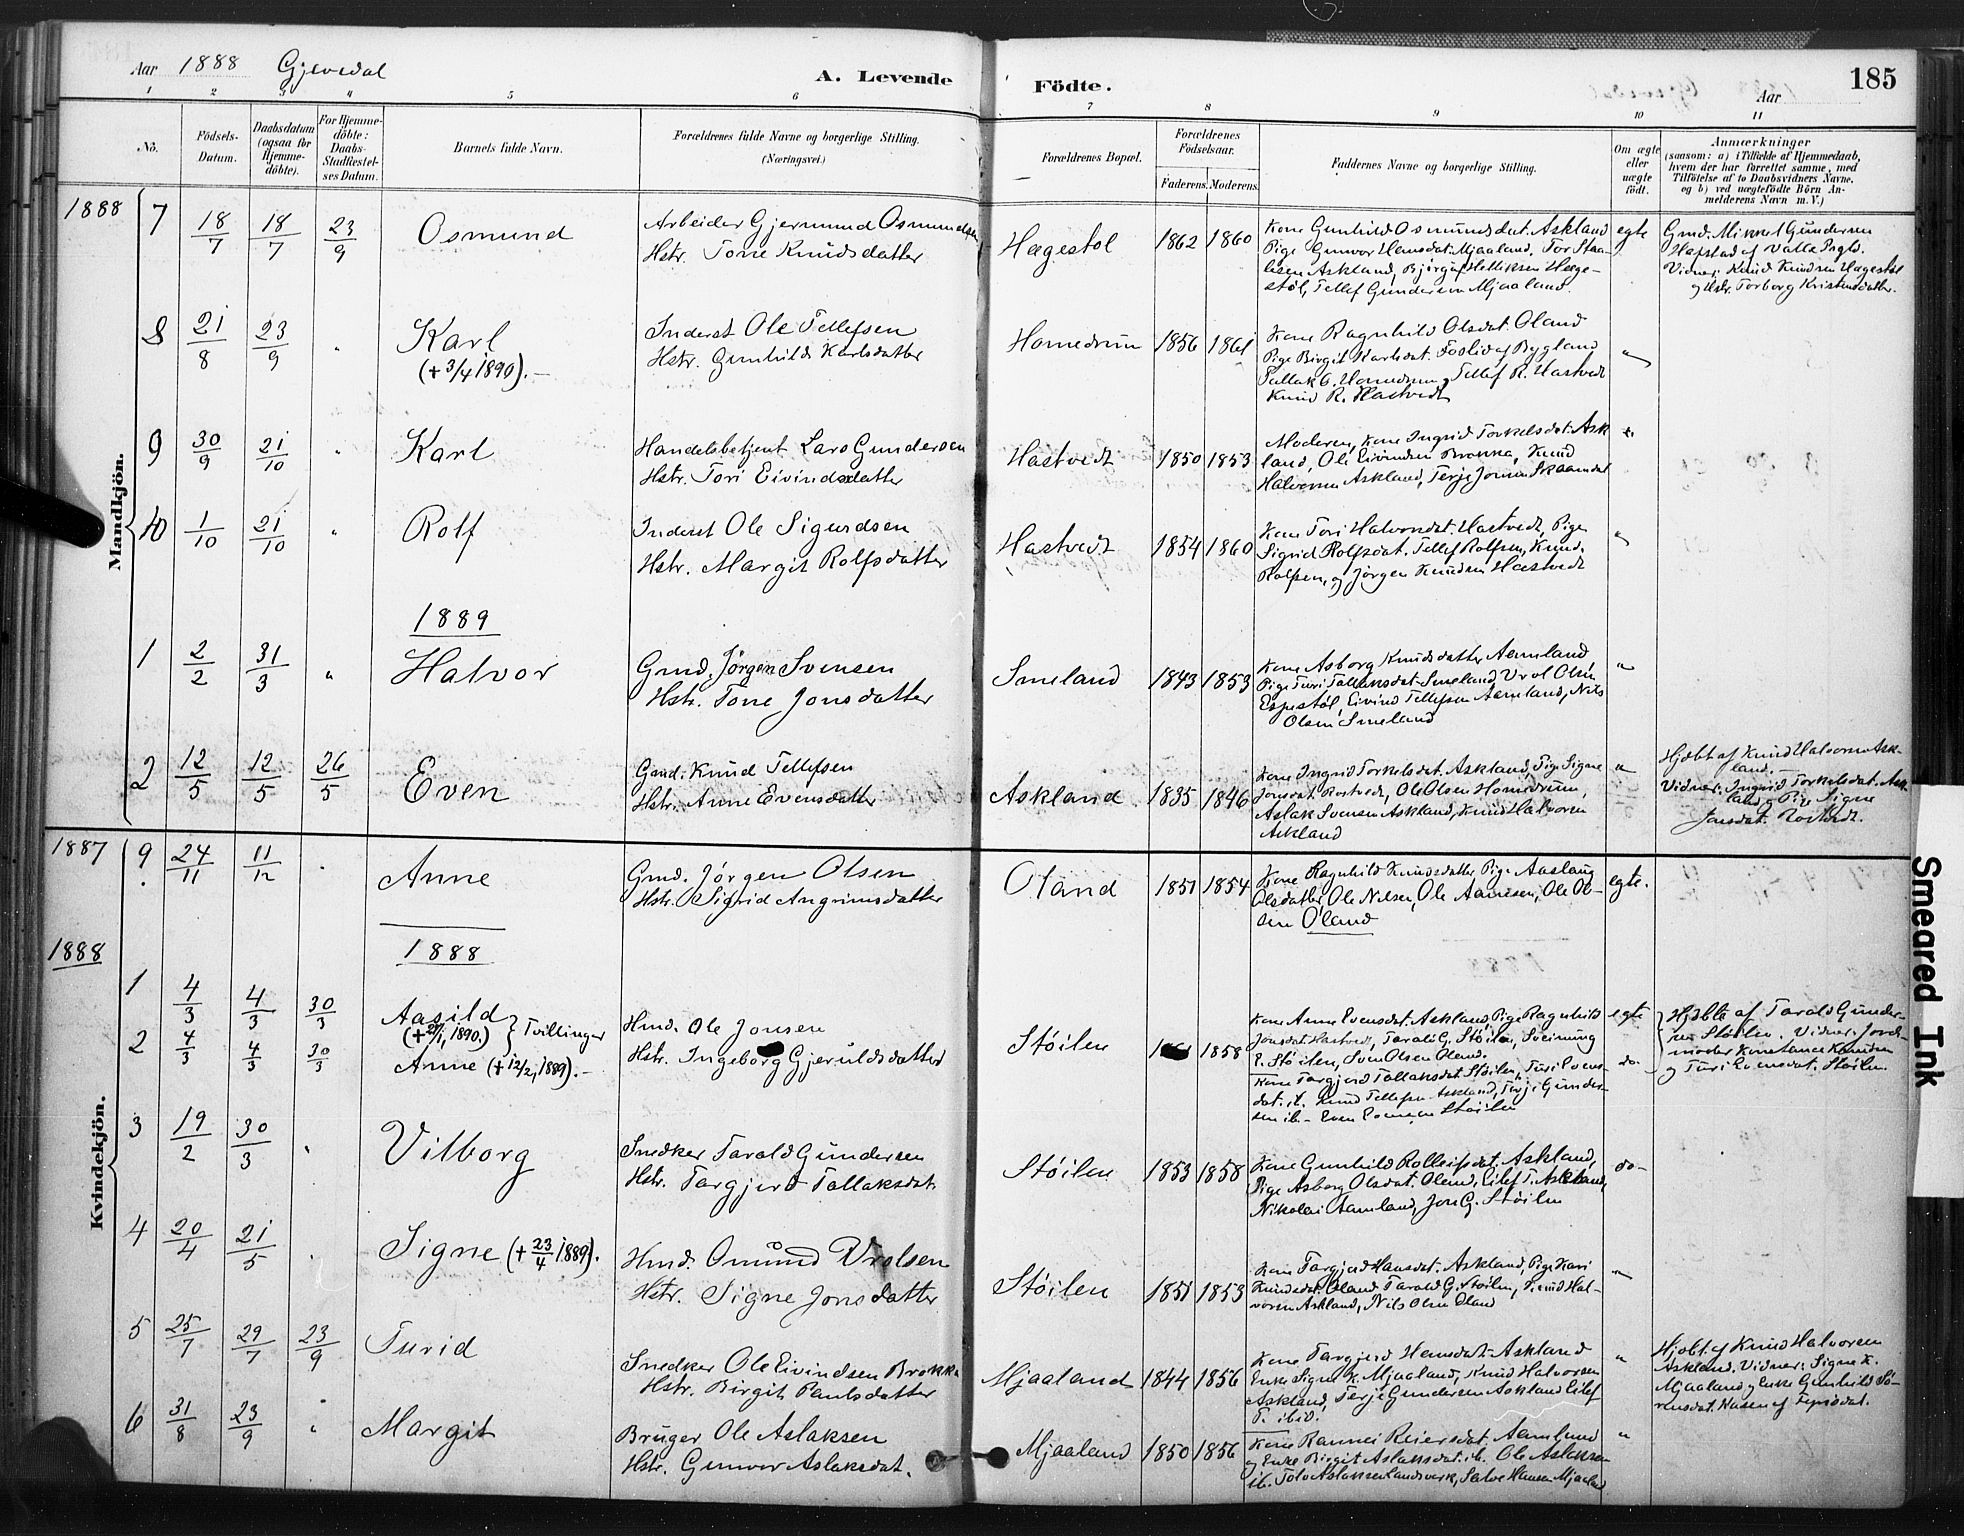 Aar 1888 Gjevedal
A. Levende Födte.
Aar
185
1 2 3 4 5 6 7 8 9 10 11
No.
Födsels-Datum.
Daabsdatum (ogsaa for Hjemme-döbte).
For Hjemme-döbte: Daabs-Stadfæstel-ses Datum.
Barnets fulde Navn.
Forældrenes fulde Navne og borgerlige Stilling. (Næringsvei.)
Forældrenes Bopæl.
Forældrenes Födselsaar.
Faderens. Moderens.
Faddernes Navne og borgerlige Stilling.
Om ægte eller uægte födt.
Anmærkninger
(saasom: a) i Tilfælde af Hjemmedaab,
hvem der har forrettet samme, med
Tilföielse af to Daabsvidners Navne,
og b) ved uægtefödte Börn An-
melderens Navn m. V.)
Mandkjön.
1888 7 18/7 18/7 23/9 Osmund
Arbeider Gjermund Osmundsen
Hstr. Tone Knudsdatter
Hægestøl 1862 1860
Kone Gunhild Osmundsdat. Askland
Pige Gunvor Hansdat. Mjaaland, Tor Staa-
lesen Askland, Bjørguf Helliksen Hæge-
støl, Tellef Gundersen Mjaaland.
egte
Gmd. Mikkel Gundersen
Hafstad af Valle Prgld.
Vidner: Knud Knudsen Hægestøl
og Hstr. Torborg Kristensdatter.
8 21/8 23/9 " Karl
(+ 3/4 1890). -
Inderst Ole Tellefsen
Hstr. Gunhild Karlsdatter
Homdrum 1856 1861
Kone Ragnhild Olsdat. Oland
Pige Birgit Karlsdat. Foslid af Bygland
Tallak O. Homdrum, Tellef R. Hastvedt
Knud R. Hastvedt
"
9 30/9 21/10 " Karl
Handelsbetjent Lars Gundersen
Hstr. Tori Eivindsdatter
Hastvedt 1850 1853
Moderen, Kone Ingrid Torkelsdat. Ask
land, Ole Eivindsen Brokka, Knud
Halvorsen Askland, Terje Jonsen Skaamdal
"
10 1/10 21/10 " Rolf
Inderst Ole Sigurdsen
Hstr. Margit Rolfsdatter
Hastvedt 1854 1860
Kone Tori Halvorsdat. Hastvedt, Pige
Sigrid Rolfsdat. Tellef Rolfsen, Knud
Rolfsen, og Jørgen Knudsen Hastvedt
"
1889
1 2/2 31/3 " Halvor
Gmd. Jørgen Svensen
Hstr. Tone Jonsdatter
Smeland 1843 1853
Kone Asborg Knudsdatter Aamland
Pige Turi Tallaksdat. Smeland Vrol Olsen
Espestøl, Eivind Tellefsen Aamland, Nils
Olsen Smeland
"
2 12/5 12/5 26/5 Even
Gmd. Knud Tellefsen
Hstr. Anne Evensdatter
Askland 1835 1846
Kone Ingrid Torkelsdat. Askland, Pige Signe
Jonsdat. Rostvedt, Ole Olsen Homdrum,
Aslak Svensen Askland, Knud Halvorsen
Askland
"
Hjdøbt af Knud Halvorsen Ask-
land.
Vidner: Ingrid Torkelsdat. Ask-
land og Pige Signe
Jonsdat. Rostvedt.
Kvindekjön.
1887 9. 24/11 11/12 " Anne
Gmd. Jørgen Olsen
Hstr. Sigrid Angrimsdatter
Oland 1851 1854
Kone Ragnhild Knudsdatter, Pige Aaslaug
Olsdatter, Ole Nilsen, Ole Aanesen, Ole Ol-
sen Oland
egte.
1888
1888
1 4/3 4/3 30/3 Aasild
(+ 27/1, 1890.) } Tvillinger
2 4/3 4/3 30/3 Anne (+ 12/2, 1889). -
Hmd. Ole Jonsen
Hstr. Ingeborg Gjeruldsdatter
Støilen 1858
Kone Anne Evensdat. Askland, Pige Ragnhild
Jonsdat Hastvedt, Tarald G. Støilen, Sveinung
E. Støilen, Sven Olsen Oland.
Kone Targjerd Tallaksdat. Støilen, Turi Evens-
dat. ib. Knud Tellefsen Askland, Terje Gunder-
sen ib. - Even Støilen
egte
do.
Hjdbte af Tarald Gunder-
sen Støilen. Vidner: Jord-
moder Konstance Knudsen
og Turi Evensdat. Støilen.
3 19/2 30/3 " Vilborg
Snedker Tarald Gundersen
Hstr. Targjerd Tallaksdat.
Støilen 1853 1858
Kone Gunhild Rolleifsdat. Askland,
Pige Asborg Olsdat. Oland, Eilef T. Askland,
Nikolai Aamland, Jon G. Støilen
do-
4 20/4 21/5 " Signe (+ 23/4 1889).
Hmd. Omund Vrolsen
Hstr. Signe Jonsdatter
Støilen 1851 1853
Kone Targjerd Hansdat. Askland, Pige Kari
Knudsdat. Oland Tarald G. Støilen, Knud Hal-
vorsen Askland, Nils Olsen Oland
"
5 25/7 29/7 23/9 Turid
Snedker Ole Eivindsen Brokka
Hstr. Birgit Paulsdatter
Mjaaland 1844 1856
Kone Targjerd Hansdat. Askland
Enke Signe K. Mjaaland, Knud Halvorsen
Askland, Terje Gundersen Askland Eilef
T. ibid.
"
Hjdbt. af Knud Halvorsen
Askland. Vidner: Signe K.
Mjaaland og Enke Gunhild Sø-
rensdat.
6 31/8 23/9 " Margit
Bruger Ole Aslaksen
Hstr. Gunvor Aslaksdat.
Mjaaland 1850 1856
Kone Rannei Reiersdat. Aamland
og Enke Birgit Aslaksdat. ib. Ole Aslaksen
ib. Tolv Aslaksen Landsverk, Salve Hansen Mjaaland
"
Smeared Ink